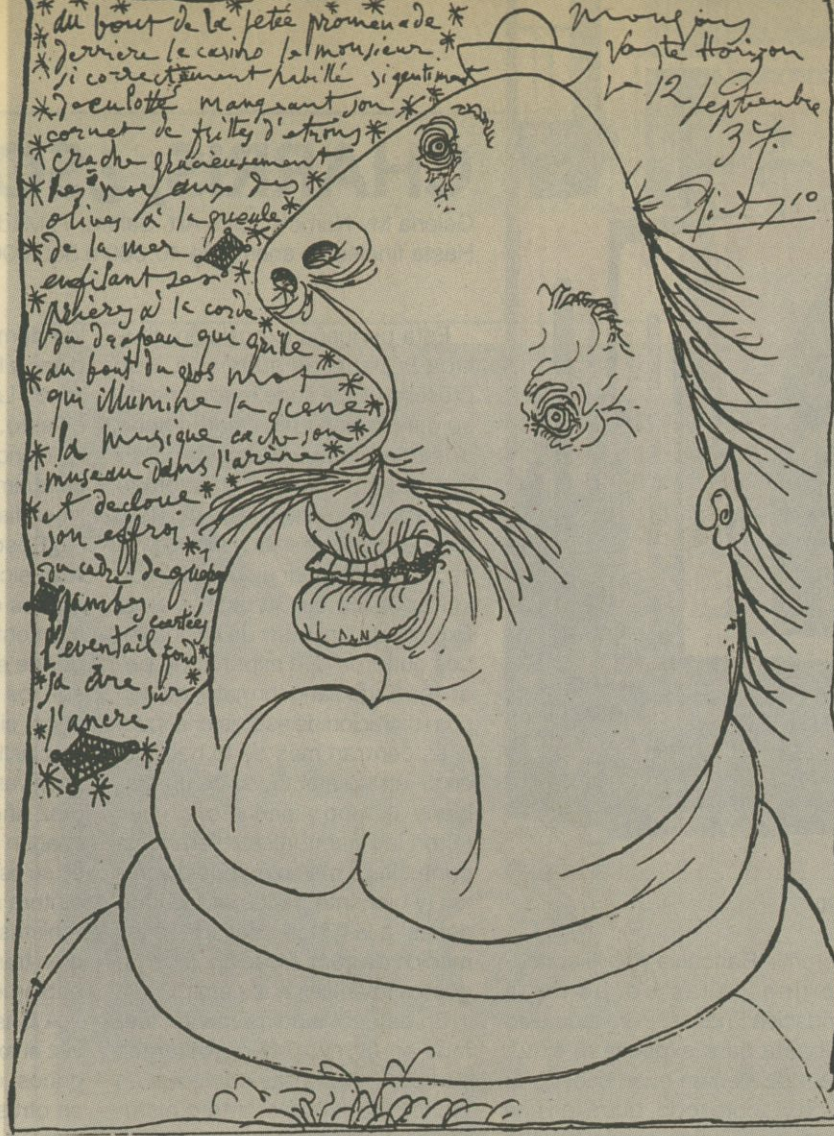 au bout de la jetée promenade
derrière le casino le monsieur
si correctement habillé si gentiment
deculotté mangeant son
cornet de frittes d'etrons
crache gracieusement
les noyaux des
olives à la gueule
de la mer
enfilant ses
prières à la corde
du drapeau qui grille
au bout du gros mot
qui illumine la scene
la musique cache son
museau dans l'arène
et decloue
son effroi
du cadre de guepes
jambes ecartées
l'eventail fond
sa cire sur
l'ancre
Mougins
Vaste Horizon
12 Septembre
37.
Picasso